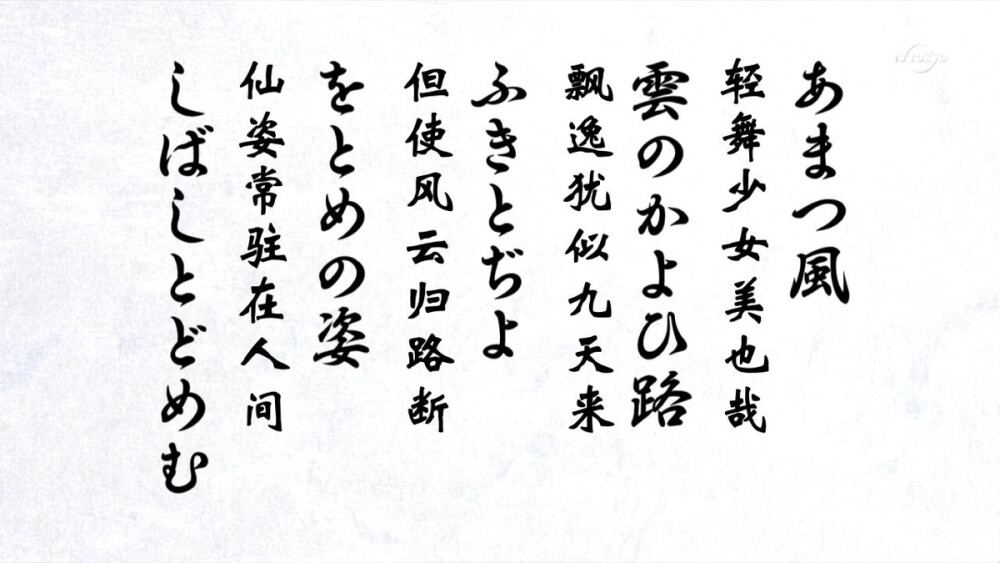 あまつ風
轻舞少女美也哉
雲のかよひ路
飘逸犹似九天来
ふきとぢよ
但使风云归路断
をとめの姿
仙姿常驻在人间
しばしとどめむ
TV TOKYO